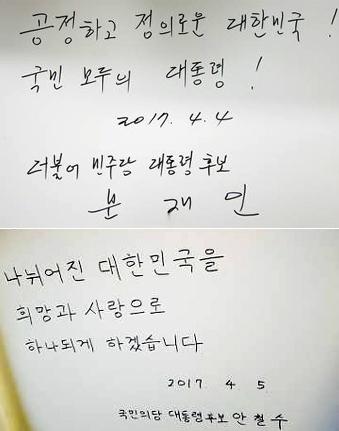 공정하고 정의로운 대한민국 !
국민 모두의 대통령 !
2017. 4. 4
더불어 민주당 대통령후보
문 재 인
나뉘어진 대한민국을
희망과 사랑으로
하나되게 하겠습니다
2017. 4. 5
국민의당 대통령후보 안 철 수